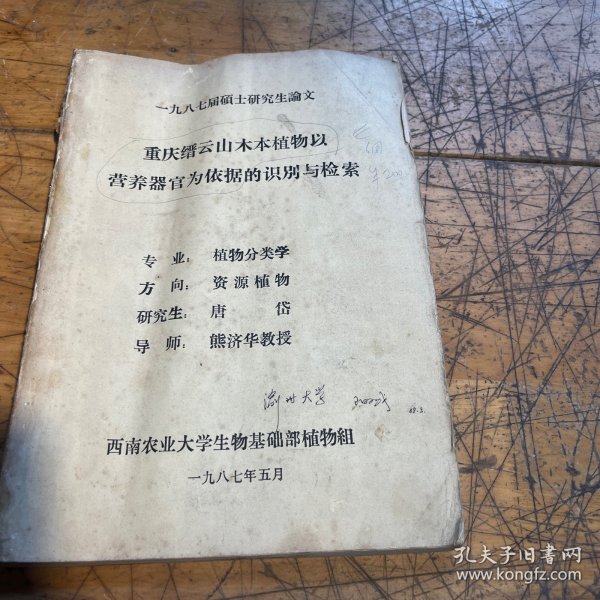 一九八七届碩士研究生論文
重庆缙云山木本植物以
营养器官为依据的识别与检索
专 业： 植物分类学
方 向： 资源植物
研究生： 唐 岱
导 师： 熊济华教授
渝州大学 88.3.
西南农业大学生物基础部植物組
一九八七年五月
孔夫子旧书网
www.kongfz.com